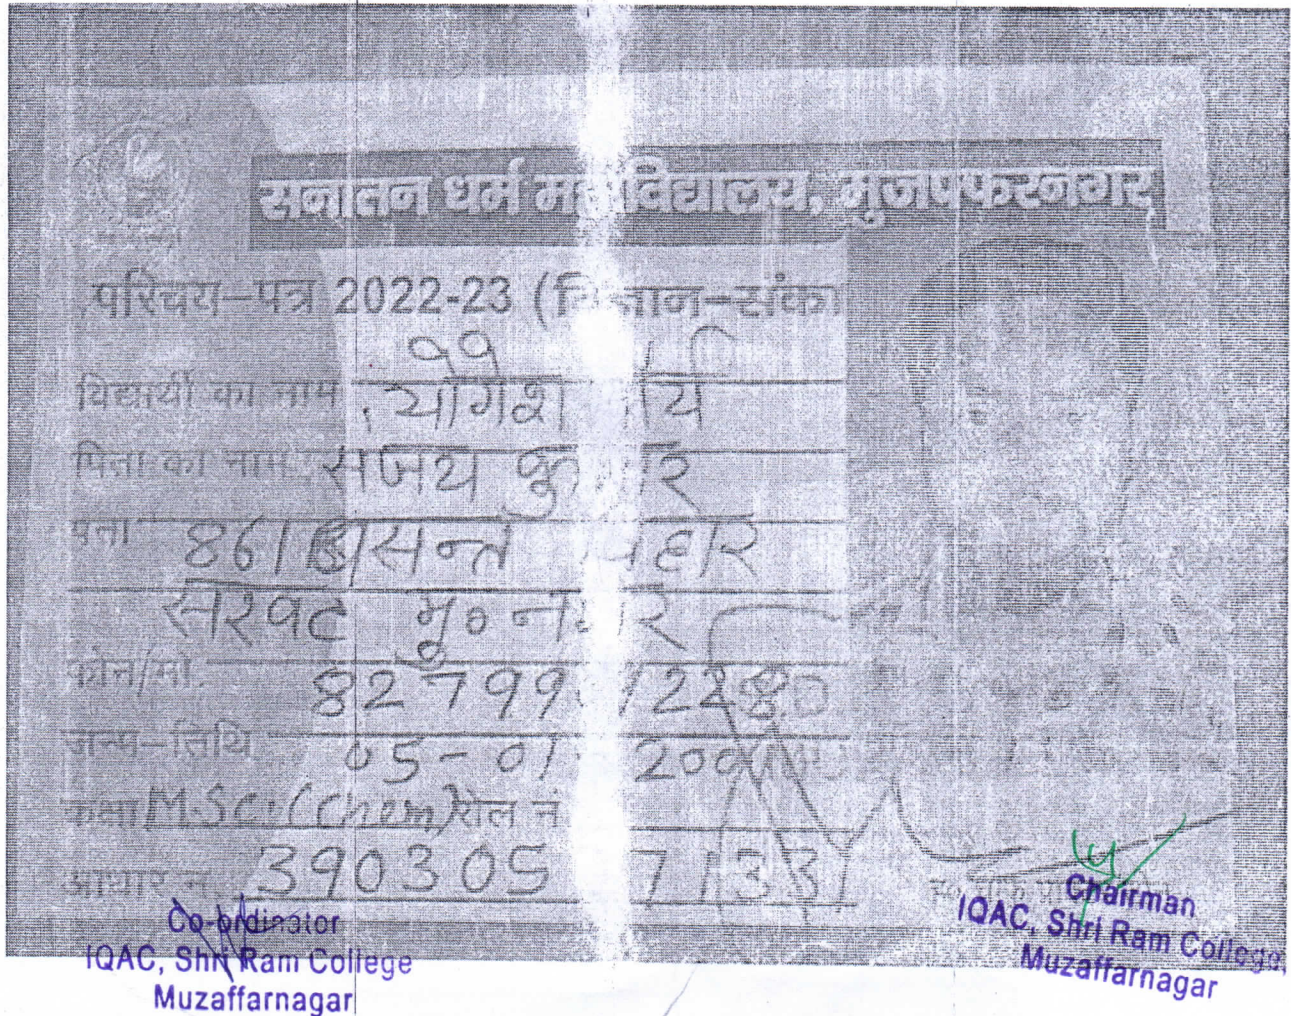 सनातन धर्म महाविद्यालय, मुजफ्फरनगर
परिचय-पत्र 2022-23 (विज्ञान-संका
विद्यार्थी का नाम योगेश
पिता का नाम संजय कुमार
पता 861 बसन्त विहार
सरवट मु० नगर
फोन/मो. 82799
जन्म-तिथि 05-01
कक्षा M.Sc. (Chem) रोल नं
आधार नं. 390305 7133
Co-ordinator
IQAC, Shri Ram College
Muzaffarnagar
Chairman
IQAC, Shri Ram College,
Muzaffarnagar